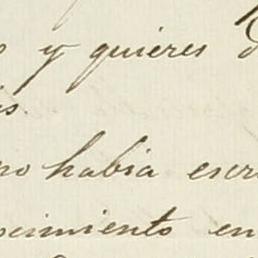 y quieres
no habia escri
cimiento en